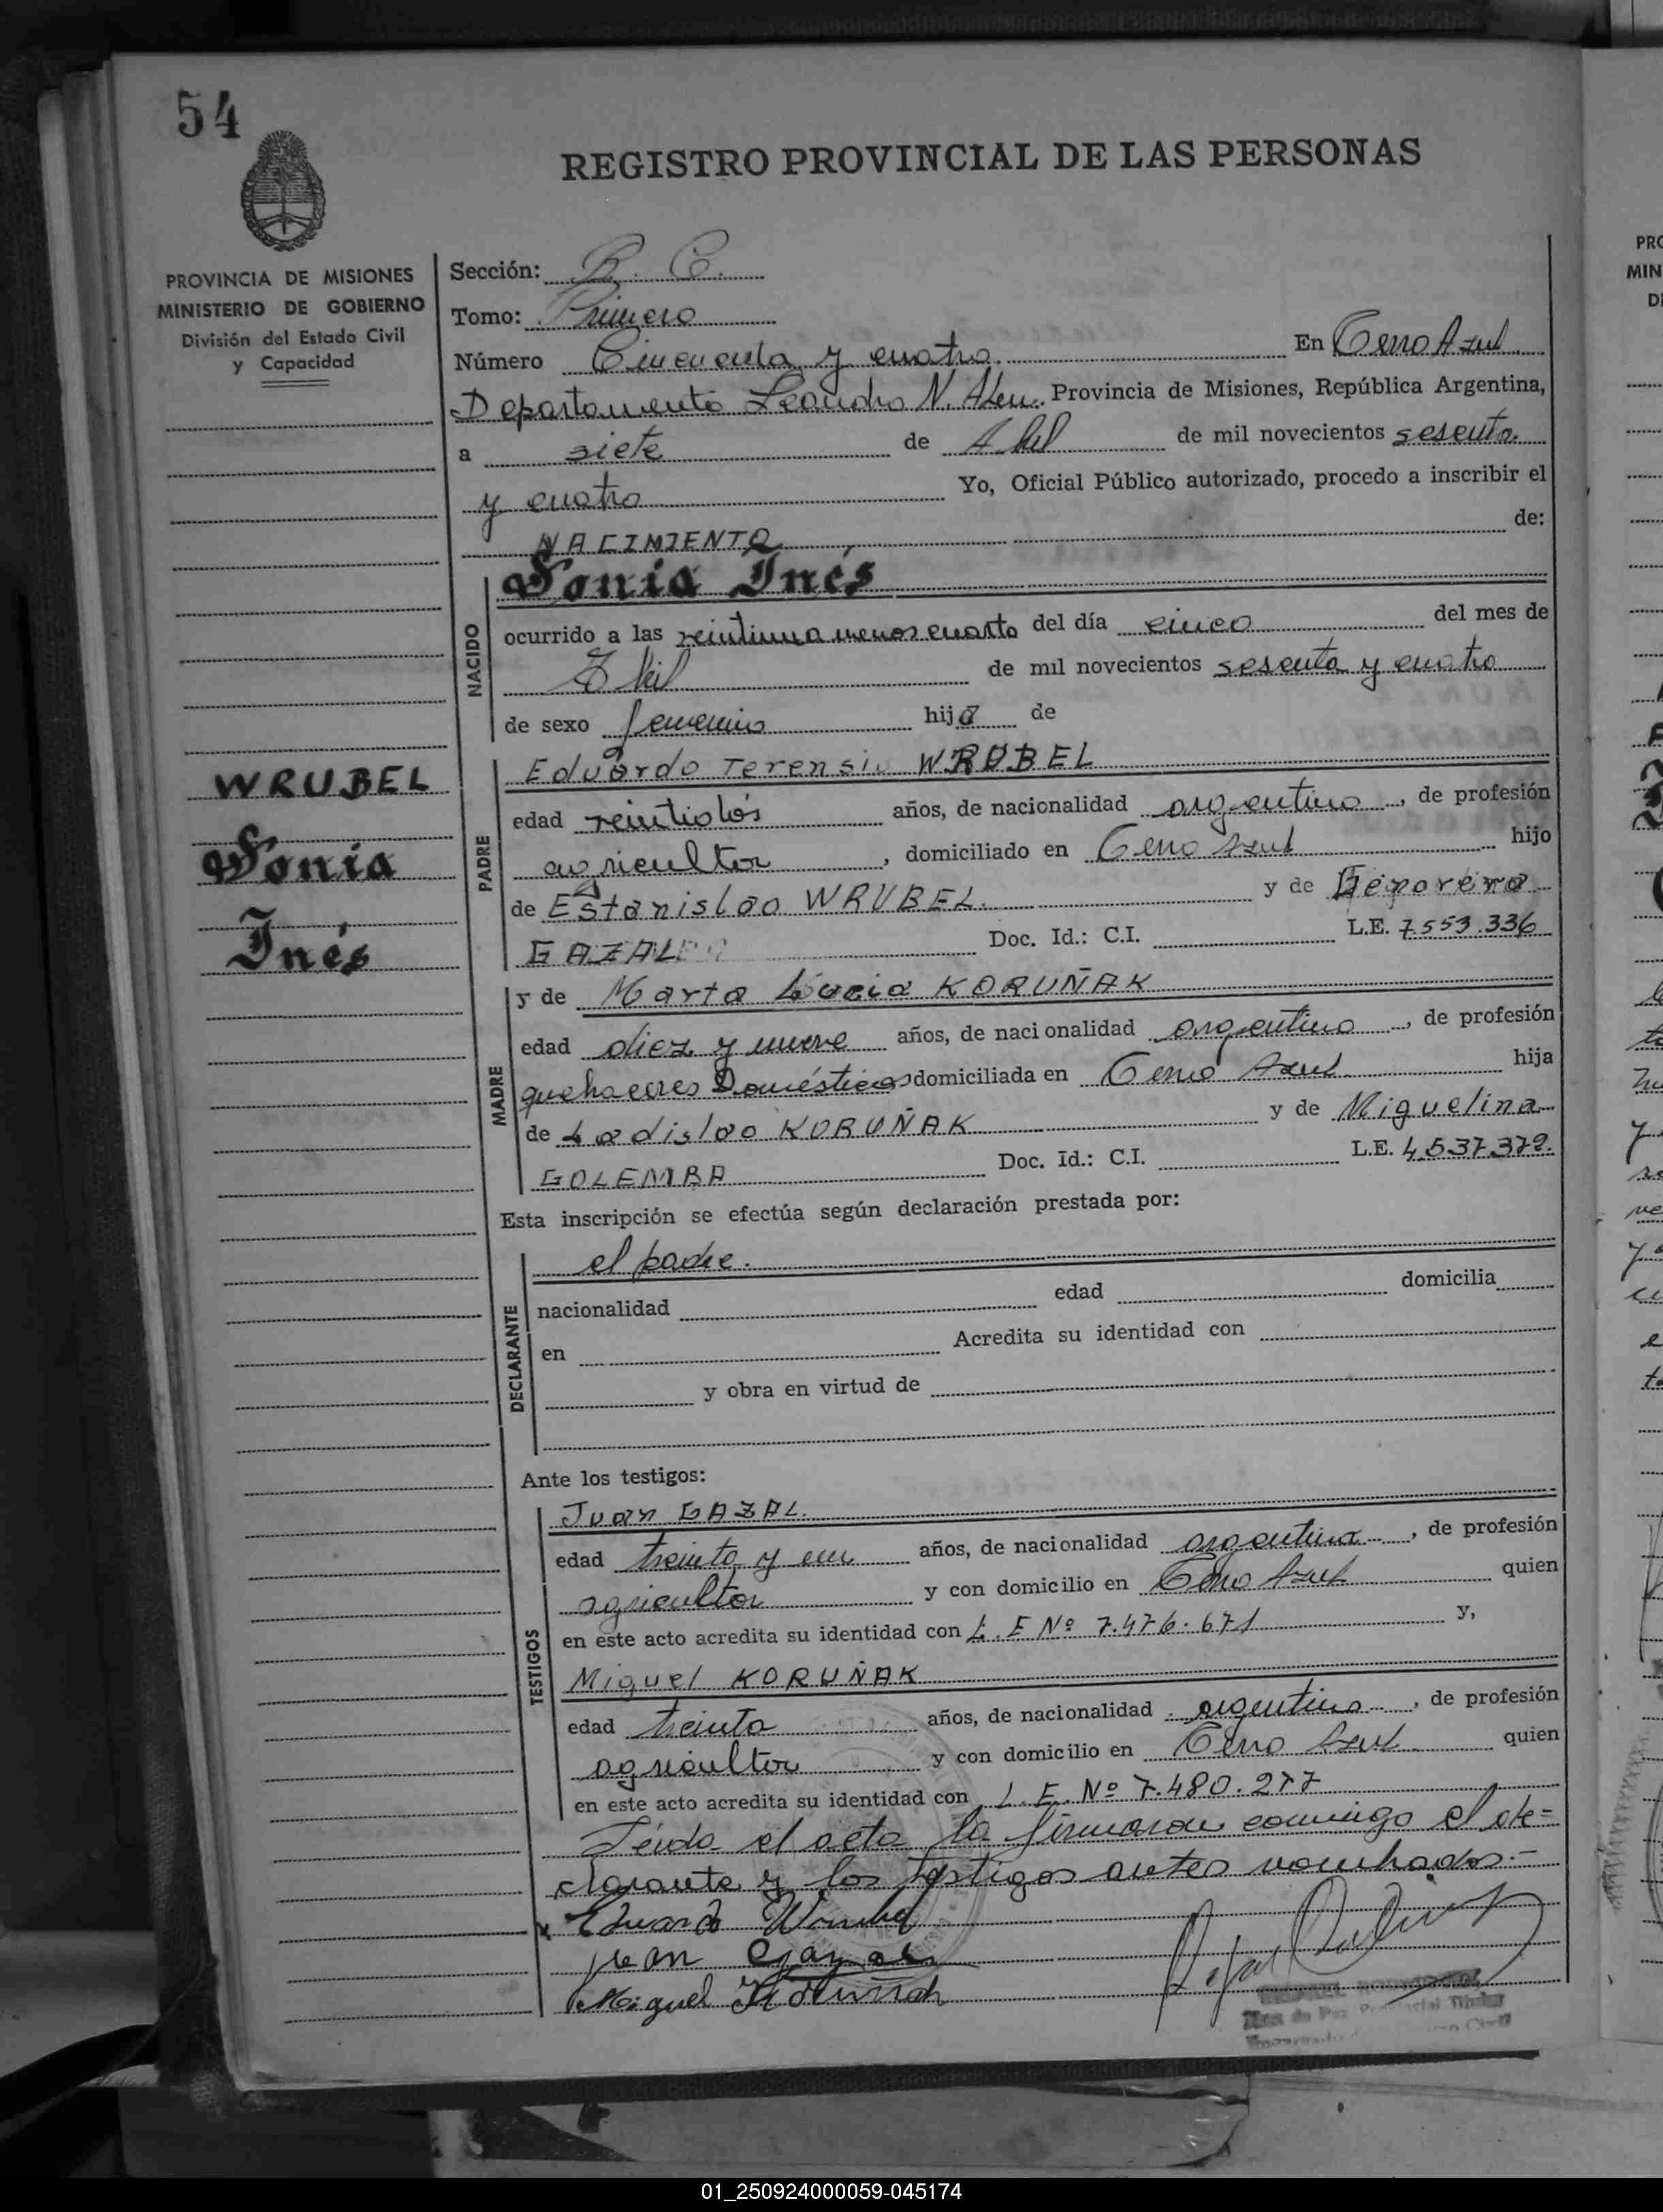 54
REGISTRO PROVINCIAL DE LAS PERSONAS
PROVINCIA DE MISIONES
MINISTERIO DE GOBIERNO
División del Estado Civil
y Capacidad
Sección:
Tomo: Primero
Número Cincuenta y cuatro En Cerro Azul
Departamento Leandro N. Alem. Provincia de Misiones, República Argentina,
a siete de Abril de mil novecientos sesenta
y cuatro Yo, Oficial Público autorizado, procedo a inscribir el
NACIMIENTO de:
NACIDO
Sonia Inés
ocurrido a las veintiuna menos cuarto del día cinco del mes de
Abril de mil novecientos sesenta y cuatro
de sexo femenino hija de
WRUBEL
Sonia
Inés
PADRE
Eduardo Terensio WRUBEL
edad veintidós años, de nacionalidad argentino, de profesión
agricultor, domiciliado en Cerro Azul hijo
de Estanislao WRUBEL. y de
GAZAL Doc. Id.: C.I. L.E. 7.553.336
MADRE
y de Marta Lucia KORUÑAK
edad diez y nueve años, de nacionalidad argentina, de profesión
quehaceres Domésticos domiciliada en Cerro Azul hija
de Ladislao KORUÑAK y de Miguelina
GOLEMBA Doc. Id.: C.I. L.E. 4.537.372.
Esta inscripción se efectúa según declaración prestada por:
DECLARANTE
el padre.
nacionalidad edad domicilia
en Acredita su identidad con
y obra en virtud de
Ante los testigos:
TESTIGOS
Juan GAZAL.
edad treinta y un años, de nacionalidad argentina, de profesión
agricultor y con domicilio en Cerro Azul quien
en este acto acredita su identidad con L. E Nº 7.476.671 y,
Miguel KORUÑAK
edad treinta años, de nacionalidad argentino, de profesión
agricultor y con domicilio en Cerro Azul quien
en este acto acredita su identidad con L. E. Nº 7.480.277
Leida el acta la firmaron conmigo el de=
clarante y los testigos antes nombrados.-
Eduardo Wrubel
Juan Gazal
Miguel Koruñak
Juez de Paz Provincial Titular
01_250924000059-045174